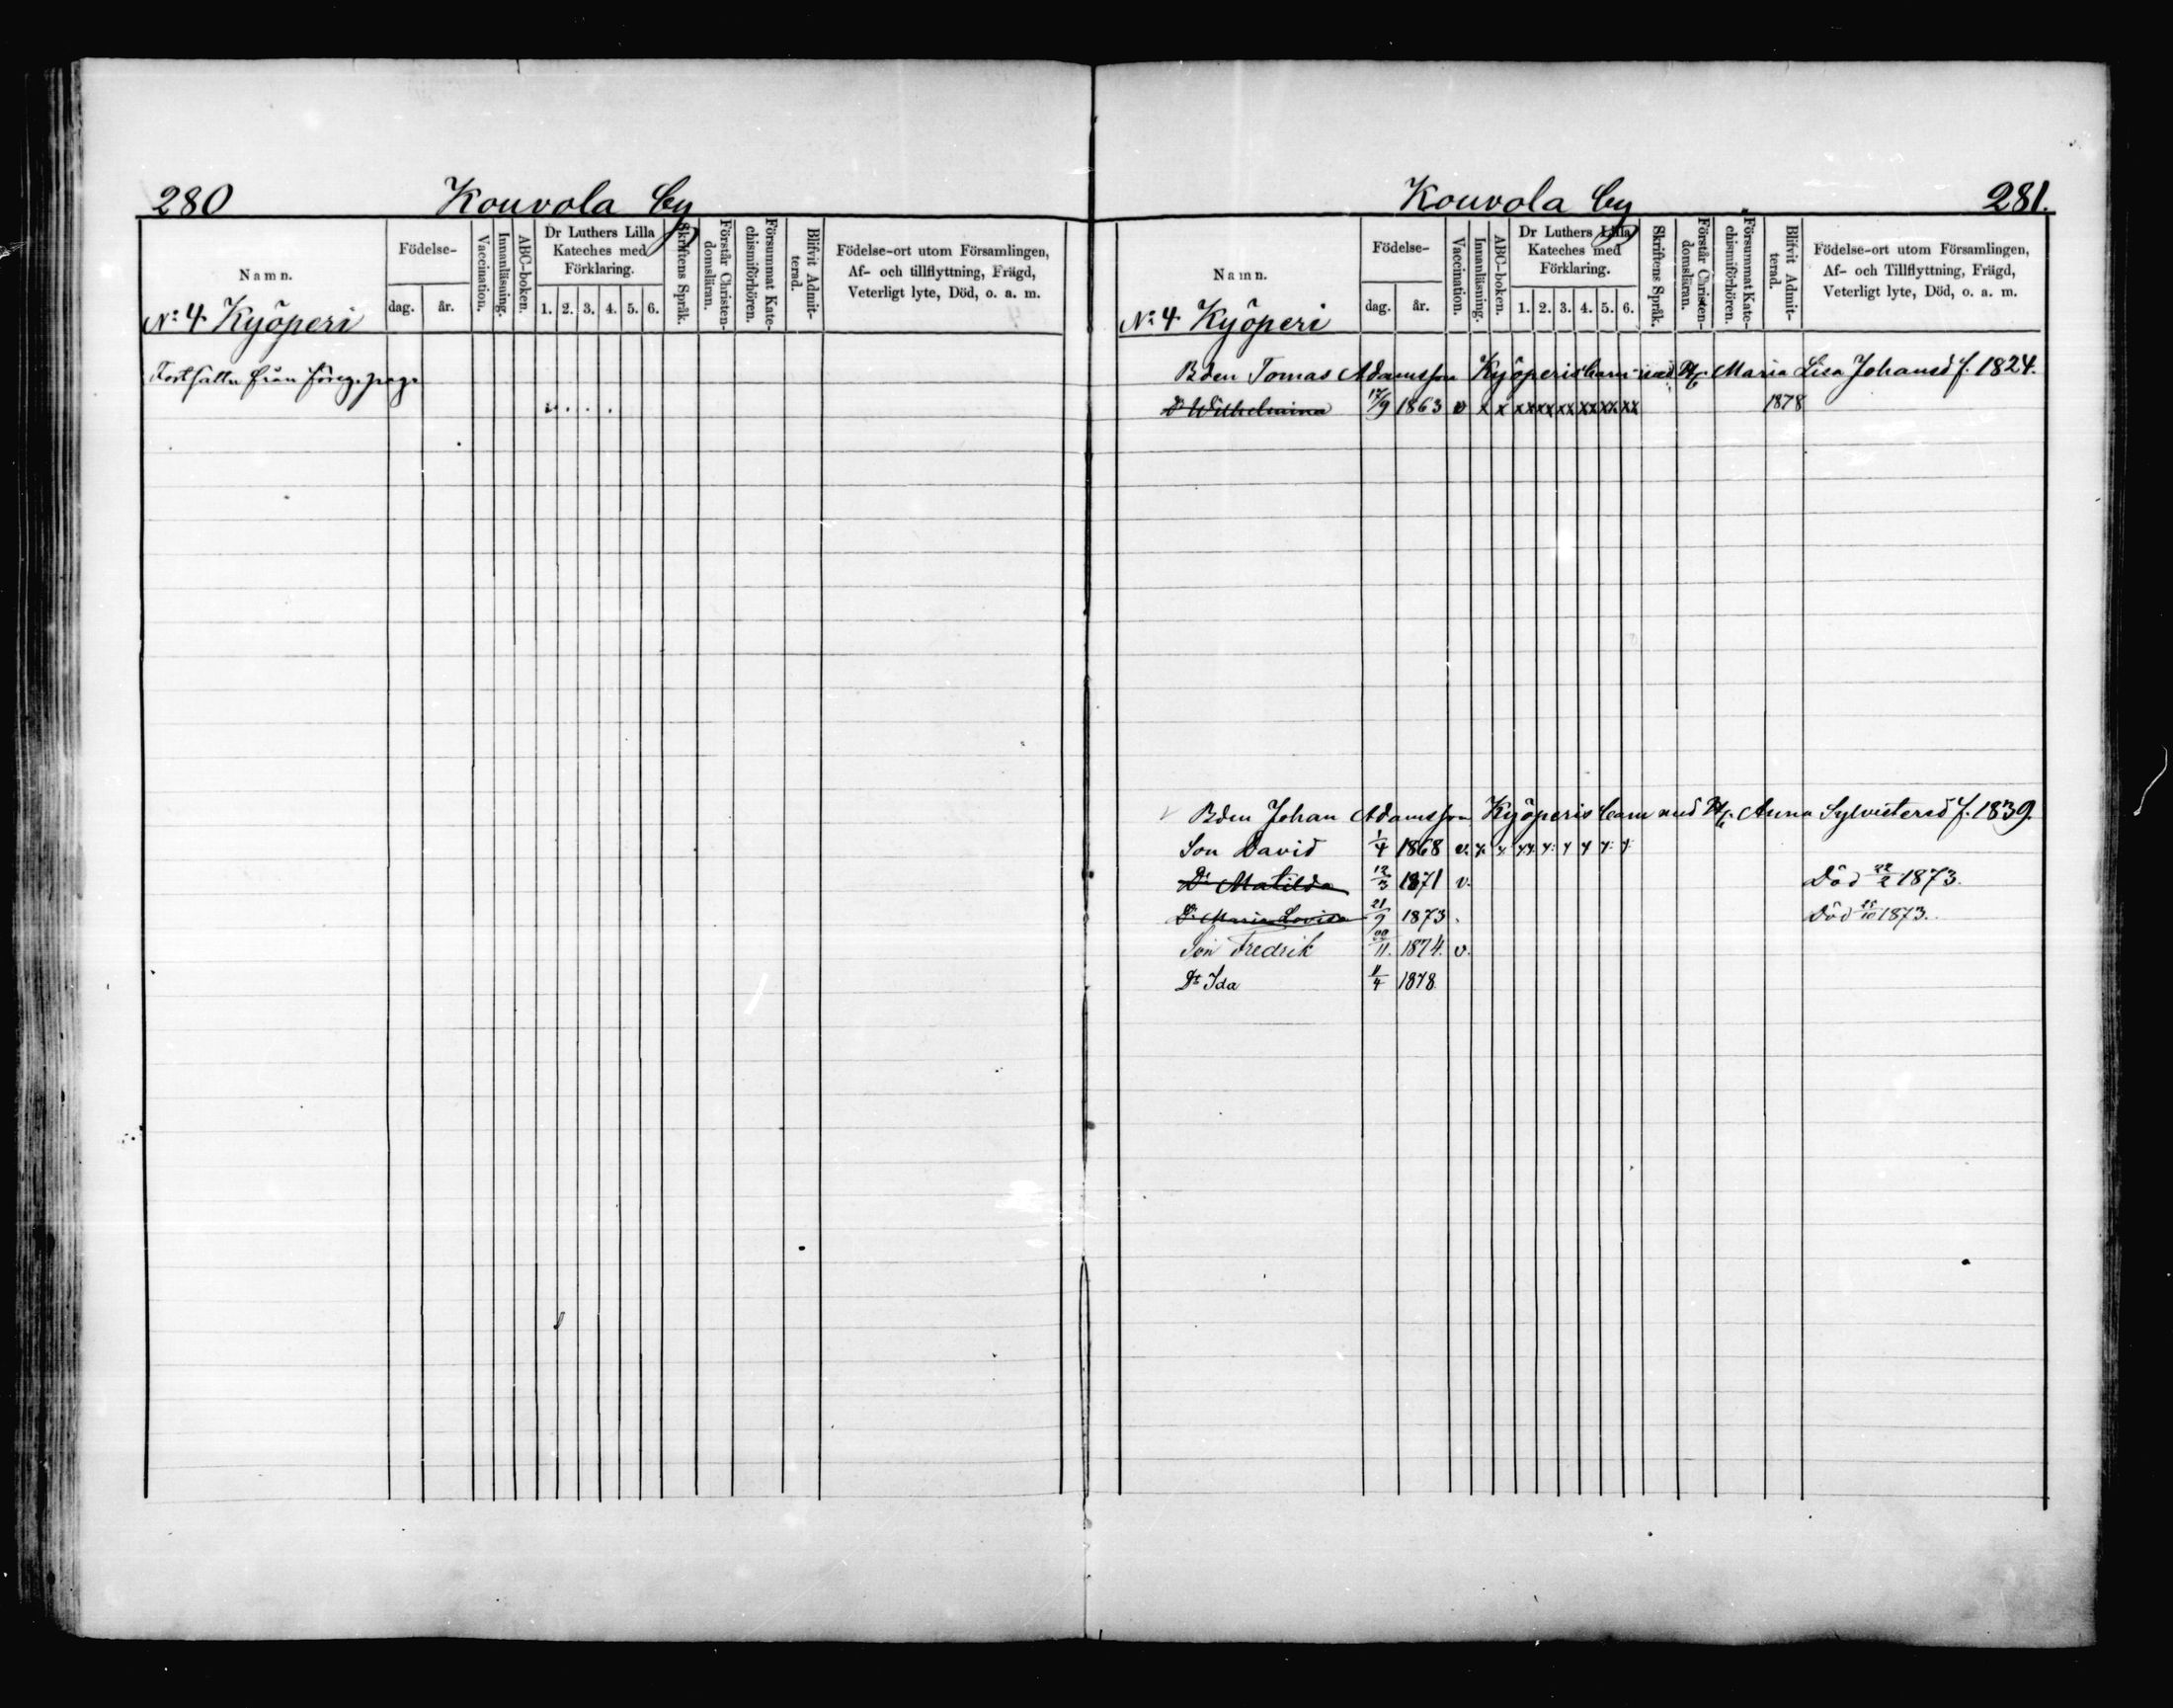 280 Kouvola by
Namn. Födelse- dag. år. Vaccination. Innanläsning. ABC-boken. Dr Luthers Lilla Kateches med Förklaring. 1. 2. 3. 4. 5. 6. Skriftens Språk. Förstår Christen-domsläran. Försummat Kate-chismiförhören. Blifvit Admit-terad. Födelse-ort utom Församlingen, Af- och tillflyttning, Frägd, Veterligt lyte, Död, o. a. m.
No 4. Kyöperi
från föreg. pag.
Kouvola by 281.
Namn. Födelse- dag. år. Vaccination. Innanläsning. ABC-boken. Dr Luthers Lilla Kateches med Förklaring. 1. 2. 3. 4. 5. 6. Skriftens Språk. Förstår Christen-domsläran. Försummat Kate-chismiförhören. Blifvit Admit-terad. Födelse-ort utom Församlingen, Af- och Tillflyttning, Frägd, Veterligt lyte, Död, o. a. m.
No 4 Kyöperi
Bden Tomas Adamsson Kyöperis barn med H. Maria Lisa Johansd f. 1824.
Dr Wilhelmina 17/9 1863 v x x xx xx xx xx xx xx 1878
Bden Johan Adamsson Kyöperis barn med H. Anna Sylvestersd f. 1839.
Son David 1/4 1868 v. x x xx x x x x x
Dr Matilda 12/3 1871 v. Död 22/2 1873.
Dr Maria Lovisa 21/9 1873. Död 25/10 1873.
Son Fredrik 30/11. 1874. v.
Dr Ida 11/4 1878.